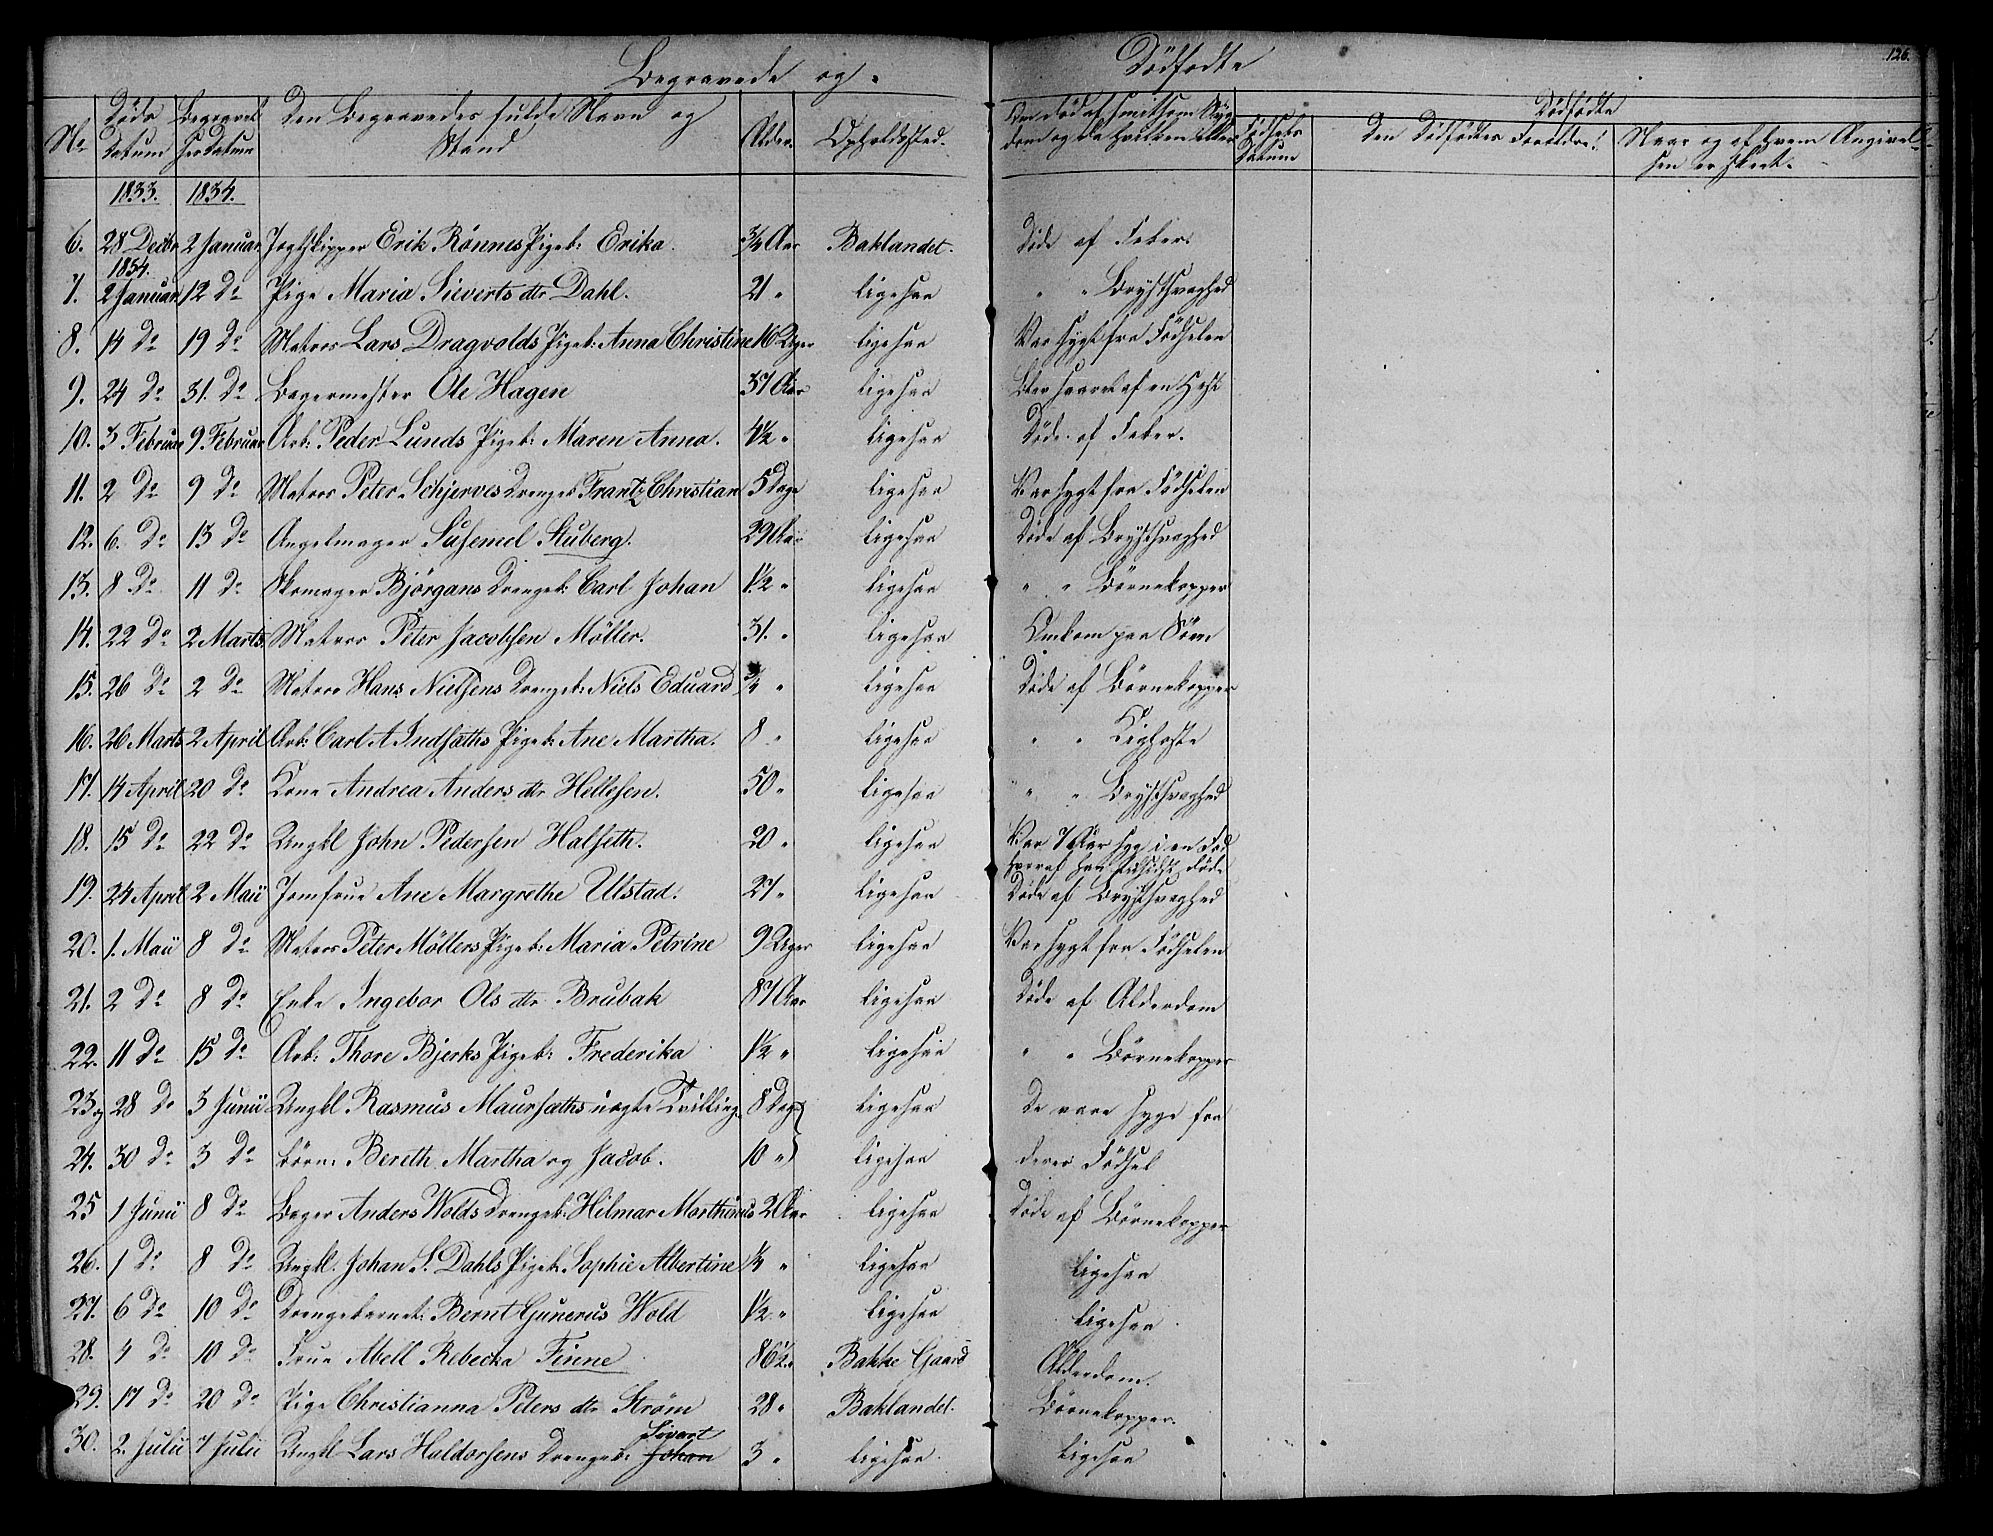 Begravede og Dödfödte
126.
No Döds Datum Begravel ses Datum Den Begravedes fulde Navn og Stand Alder. Opholdssted. Om död af smitsom Syg dom og da hvilken eller Födsels Datum Dödfödte Den Dödfödtes Forældre. Naar og af Hvem Angivel sen er skeet.
1833. 1834.
6. 28 Decbr 2 Januar Jagtskipper Erik Rönnes Pigeb: Erika. 3/4 Aar Baklandet. Döde af Feber.
1834.
7. 2 Januar 12 Do Pige Maria Sieverts dtr Dahl. 21 " ligesaa " " Brystsvaghed
8. 14 Do 19 Do Matros Lars Dragvolds Pigeb: Anna Christine 16 Uger ligesaa Var sygt fra Födselen
9. 24 Do 31. Do Bagermester Ole Hagen 37 Aar ligesaa Blev saaret af en Hest
10. 3 Februar 9. Februar Arb: Peder Lunds Pigeb: Maren Anna. 4 1/2 " ligesaa Döde af Feber.
11. 2 Do 9 Do Matros Peter Schjerves Drengeb: Frantz Christian 5 Dage ligesaa Var sygt fra Födselen
12. 6. Do 13 Do Angelmager Susemel Stuberg. 29 Aar ligesaa Döde af Brystsvaghed
13. 8 Do 11 Do Skomager Björgans Drengeb: Carl Johan 1 1/2 " ligesaa " " Börnekopper
14. 22 Do 2 Marts Matros Peter Jacobsen Möller. 31. " ligesaa Omkom paa Söen
15. 26 Do 2 Do Matros Hans Nielsens Drengeb: Niels Eduard 3/4 " ligesaa Döde af Börnekopper
16. 26 Marts 2 April Arb: Carl A Indsæths Pigeb: Ane Martha. 8 " ligesaa " " Kighoste
17. 14 April 20 Do Kone Andrea Anders dtr Hellesen. 50 " ligesaa " " Brystsvaghed
18. 15 Do 22 Do Ungkl John Pedersen Halseth. 20 " ligesaa Var 7 Aar syg i en Fod
hvoraf han tilsidst döde
19. 24 April 2 Maii Jomfrue Ane Margrethe Ulstad. 27 " ligesaa Döde af Brystsvaghed
20. 1. Maii 8 Do Matros Peter Möllers Pigeb: Maria Petrine 9 Uger ligesaa Var sygt fra Födselen
21. 2 Do 8 Do Enke Ingebor Ols dtr Brubak 87 Aar ligesaa Döde af Alderdom
22. 11 Do 15 Do Arb: Thore Bjerks Pigeb: Frederika 1 1/2 " ligesaa " " Börnekopper
23 og 28 Do 3 Junii Ungkl Rasmus Maursæths uægte Tvilling 8 Dage ligesaa De vare syge fra
24. 30 Do 3 Do börn: Bereth Martha og Jacob. 10 " ligesaa deres Födsel
25 1 Junii 8 Do Bager Anders Wolds Drengeb: Hilmar Marthinus 2 Aar ligesaa Döde af Börnekopper
26. 1 Do 8 Do Ungkl. Johan S. Dahls Pigeb: Sophie Albertine 1/4 " ligesaa ligesaa
27. 6 Do 10 Do Drengebarnet: Bernt Gunerus Wold 1 1/2 " ligesaa ligesaa
28. 4 Do 10 Do Frue Abell Rebecka Finne 86 1/2 " Bakke Gaard Alderdom.
29. 17 Do 20 Do Pige Christianna Peters dtr Ström 28 " Baklandet. Börnekopper.
30. 2. Julii 7 Julii Ungkl Lars Haldorsens Drengeb: Johan Sivert 3 " ligesaa ligesaa